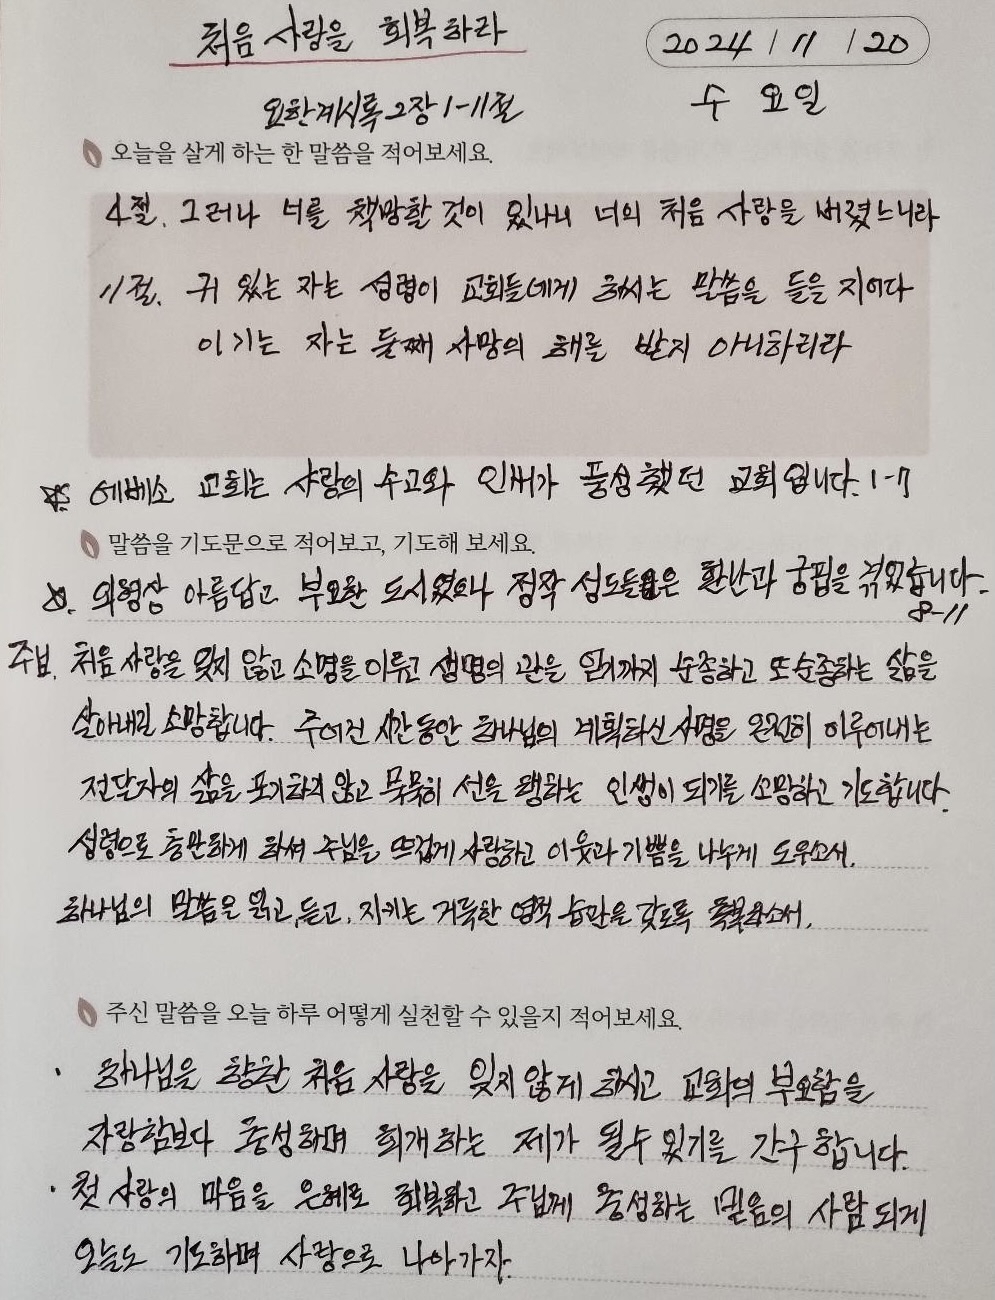 처음 사랑을 회복하라
2024 / 11 / 20
수 요일
요한계시록 2장 1-11절
오늘을 살게 하는 한 말씀을 적어보세요.
4절. 그러나 너를 책망할 것이 있나니 너의 처음 사랑을 버렸느니라
11절. 귀 있는 자는 성령이 교회들에게 하시는 말씀을 들을 지어다
이기는 자는 둘째 사망의 해를 받지 아니하리라
에베소 교회는 사랑의 수고와 인내가 풍성했던 교회입니다. 1-7
말씀을 기도문으로 적어보고, 기도해 보세요.
외형상 아름답고 부요한 도시였으나 정작 성도들은 환난과 궁핍을 겪었습니다.
8-11
주님, 처음 사랑을 잊지 않고 소명을 이루고 생명의 관을 얻기까지 순종하고 또 순종하는 삶을
살아내길 소망합니다. 주어진 시간동안 하나님의 계획하신 사명을 온전히 이루어내는
전달자의 삶을 포기하지 않고 묵묵히 선을 행하는 인생이 되기를 소망하고 기도합니다.
성령으로 충만하게 하셔 주님을 뜨겁게 사랑하고 이웃과 기쁨을 나누게 도우소서.
하나님의 말씀을 읽고, 듣고, 지키는 거룩한 영적 습관을 갖도록 축복하소서.
주신 말씀을 오늘 하루 어떻게 실천할 수 있을지 적어보세요.
· 하나님을 향한 처음 사랑을 잊지 않게 하시고 교회의 부요함을
자랑함보다 충성하며 회개하는 제가 될수 있기를 간구합니다.
· 첫 사랑의 마음을 은혜로 회복하고 주님께 충성하는 믿음의 사람 되게
오늘도 기도하며 사랑으로 나아가자.